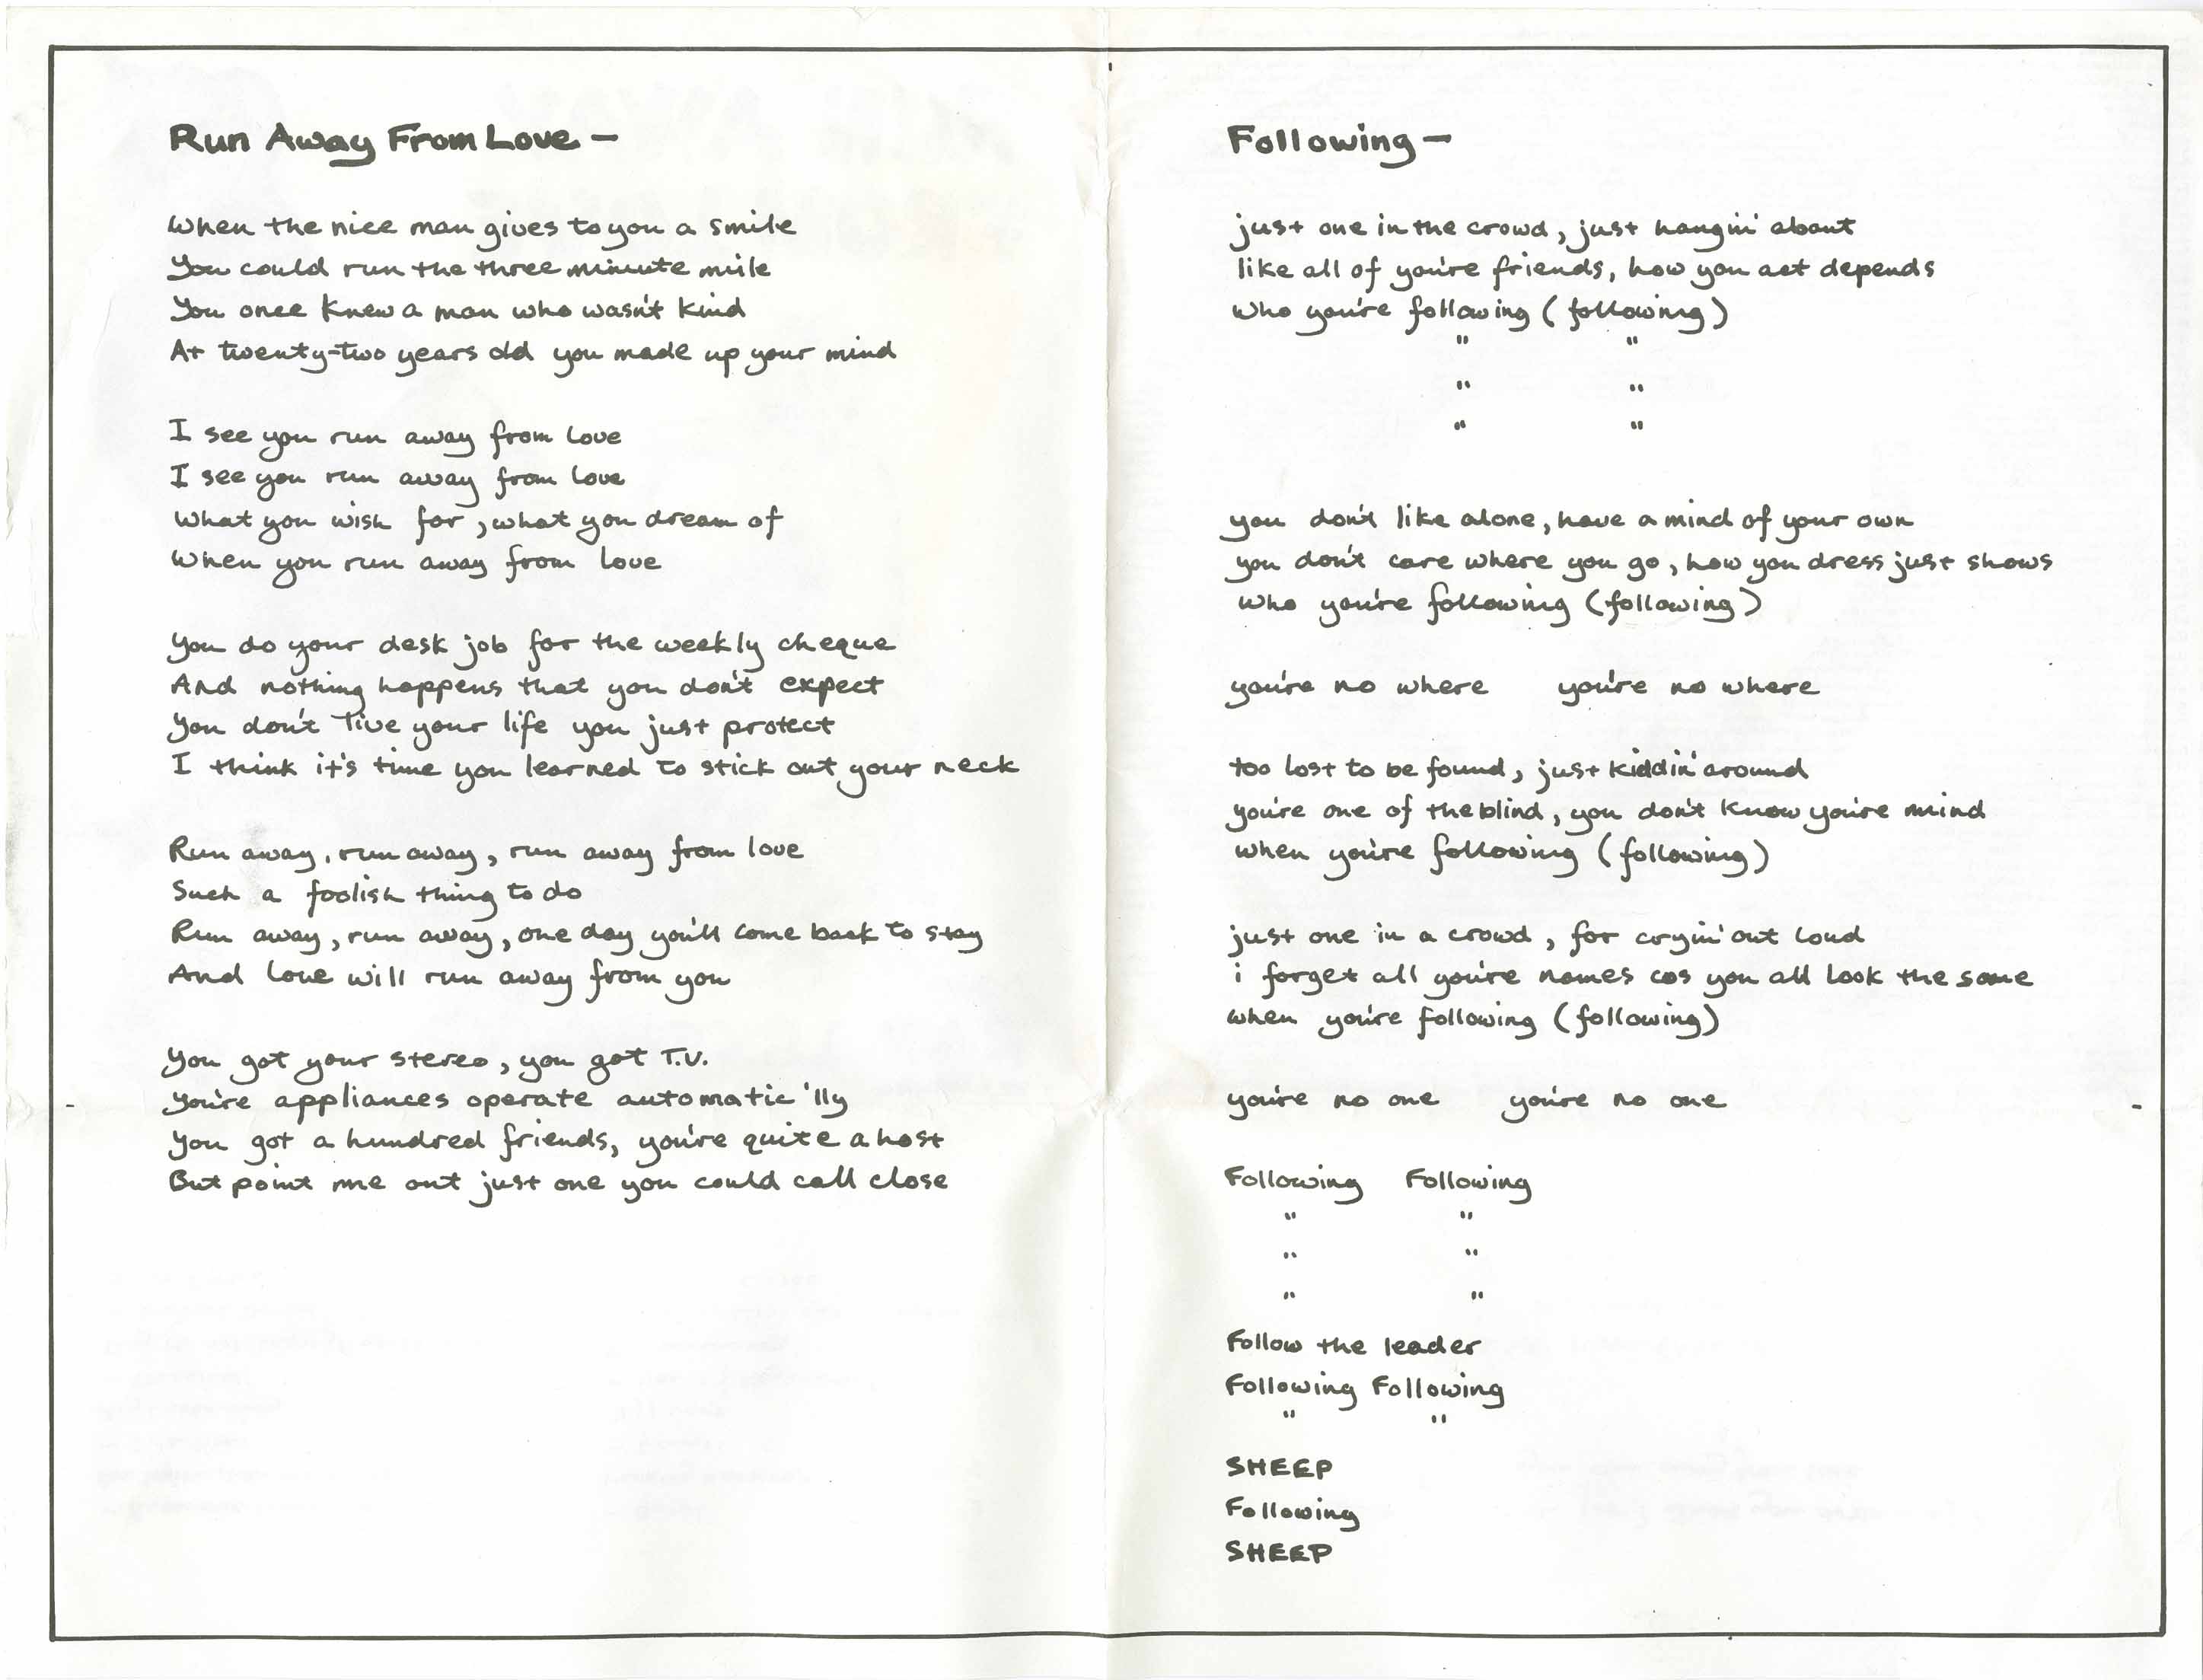 Run Away From Love –
When the nice man gives to you a smile
You could run the three minute mile
You once knew a man who wasn't kind
At twenty-two years old you made up your mind
I see you run away from love
I see you run away from love
What you wish for, what you dream of
When you run away from love
You do your desk job for the weekly cheque
And nothing happens that you don't expect
You don't live your life you just protect
I think it's time you learned to stick out your neck
Run away, run away, run away from love
Such a foolish thing to do
Run away, run away, one day you'll come back to stay
And love will run away from you
You got your stereo, you got T.V.
You're appliances operate automatic'lly
You got a hundred friends, you're quite a host
But point me out just one you could call close
Following –
just one in the crowd, just hangin' about
like all of you're friends, how you act depends
who you're following (following)
" "
" "
" "
you don't like alone, have a mind of your own
you don't care where you go, how you dress just shows
who you're following (following)
you're no where you're no where
too lost to be found, just kiddin' around
you're one of the blind, you don't know you're mind
when you're following (following)
just one in a crowd, for cryin' out loud
i forget all you're names cos you all look the same
when you're following (following)
you're no one you're no one
Following Following
" "
" "
" "
Follow the leader
Following Following
" "
SHEEP
Following
SHEEP